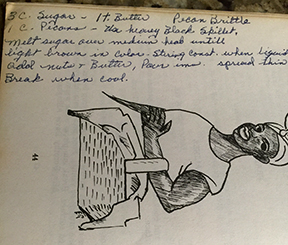 3 C. Sugar - 1 t Butter Pecan Brittle
1 C. Picons - Use heavey Black Skillet,
Melt sugar over medium heat untill
light brown in color - String const. when Liquid
add nuts + Butter, Pour in spread thin
Break when cool.
44